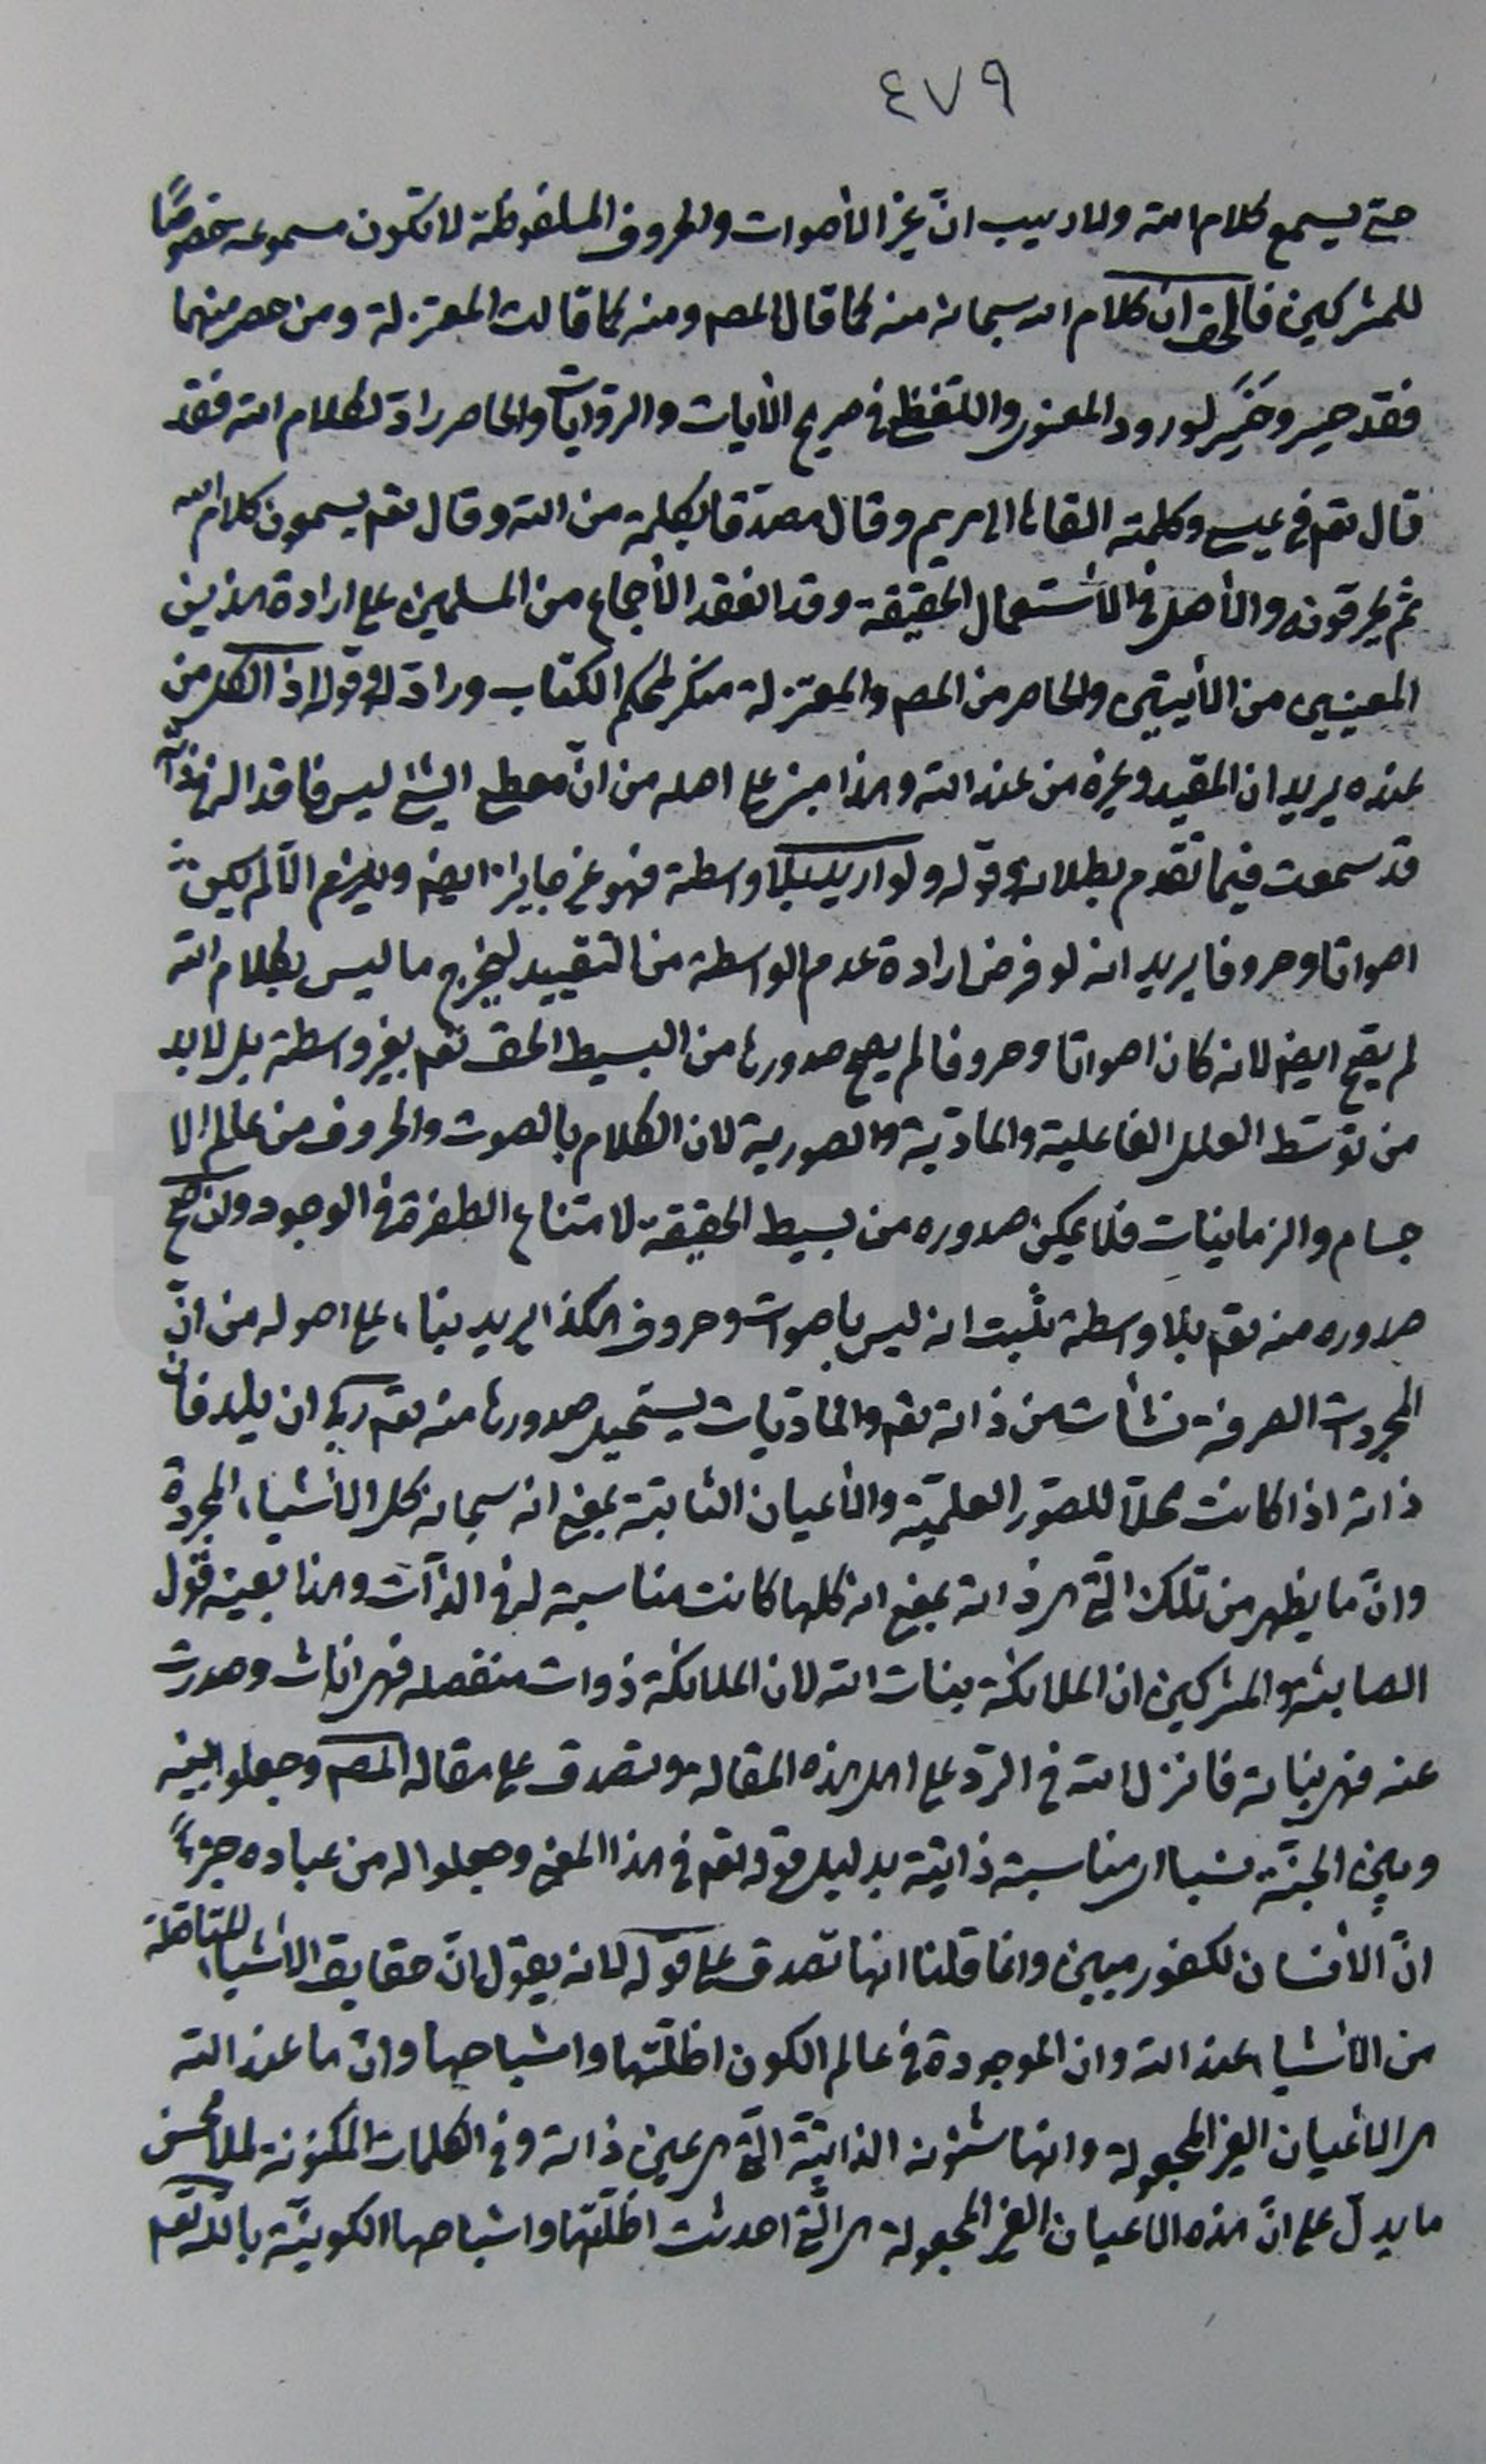 ٤٧٩
حتى يسمع كلام الله ولا ريب انّ غير الأصوات والحروف الملفوظة لا تكون مسموعه خصوصًا
للمشركين فالحق ان كلام الله سبحانه منه كما قال المص ومنه كما قالت المعتزلة ومن حصر منهما
فقد حير وتحيّر لورود المعنى واللفظ في صريح الأيات والروايات والحاصر رادّ لكلام الله فقد
قال تعم في عيسى وكلمته القاها الى مريم وقال مصدّقا بكلمة من الله وقال تعم يسمعون كلام الله
ثم يحرفونه والأصل في الأستعمال الحقيقة وقد انعقد الأجماع من المسلمين على ارادة هذين
المعنيين من الأيتين والحاصر من المص والمعتزلة منكر لمحكم الكتاب وراد له وقوله اذ الكل من
عنده يريد ان المقيد وغيره من عند الله وهذا مبنى على اصله من انّ معطى الشئ ليس فاقدا له في ذاته
قد سمعت فيما تقدم بطلانه وقوله ولو اريد بلا واسطة فهو غير جايز ايض ويلزم الّا لم يكن
اصواتا وحروفا يريد انه لو فرض ارادة عدم الواسطة من التقييد ليخرج ما ليس بكلام الله
لم يصح ايض لانه كان اصواتا وحروفا لم يصح صدورها من البسيط الحق تعم بغير واسطة بل لا بد
من توسّط العلل الفاعلية والمادّية والصورية لان الكلام بالصوت والحروف من عالم الا
جسام والزمانيات فلا يمكن صدوره من بسيط الحقيقة لامتناع الطفرة في الوجود وان صح
صدوره منه تعم بلا واسطة ثبت انه ليس باصوات وحروف هكذا يريد بناء على اصوله من انّ
المجردات الصرفة نشأت من ذاته تعم والماديات يستحيل صدورها منه تعم ربى ان يلد فان
ذاته اذا كانت محلّا للصّور العلميّة والأعيان الثابتة بمعنى انه سبحانه كل الأشياء المجردة
وانّ ما يظهر من تلك التى هى ذاته بمعنى انه كلها كانت مناسبة له في الذّات وهذا بعينه قول
الصابئة والمشركين ان الملائكة بنات الله لان الملائكة ذوات منفصله فهى اناث وصدرت
عنه فهى بناته فانزل الله في الردّ على اهل هذه المقالة وتصدق على مقاله المص وجعلوا بينه
وبين الجنّة نسبا اى مناسبة ذاتية بدليل قوله تعم في هذا المعنى وجعلوا له من عباده جزءًا
انّ الأنسان لكفور مبين وانما قلنا انها تصدق على قوله لانه يقول انّ حقايق الأشياء المتاصلة
من الأشياء عند الله وان الموجودة في عالم الكون اظلّتها واشباحها وانّ ما عند الله
هى الأعيان الغير المجعولة وانها شئونه الذاتيّة التى هى عين ذاته وفي الكلمات المكنونة لملا محسن
ما يدلّ على انّ هذه الأعيان الغير المجعولة هى الّتى احدثت اظلّتها واشباحها الكونيّة بالله تعم